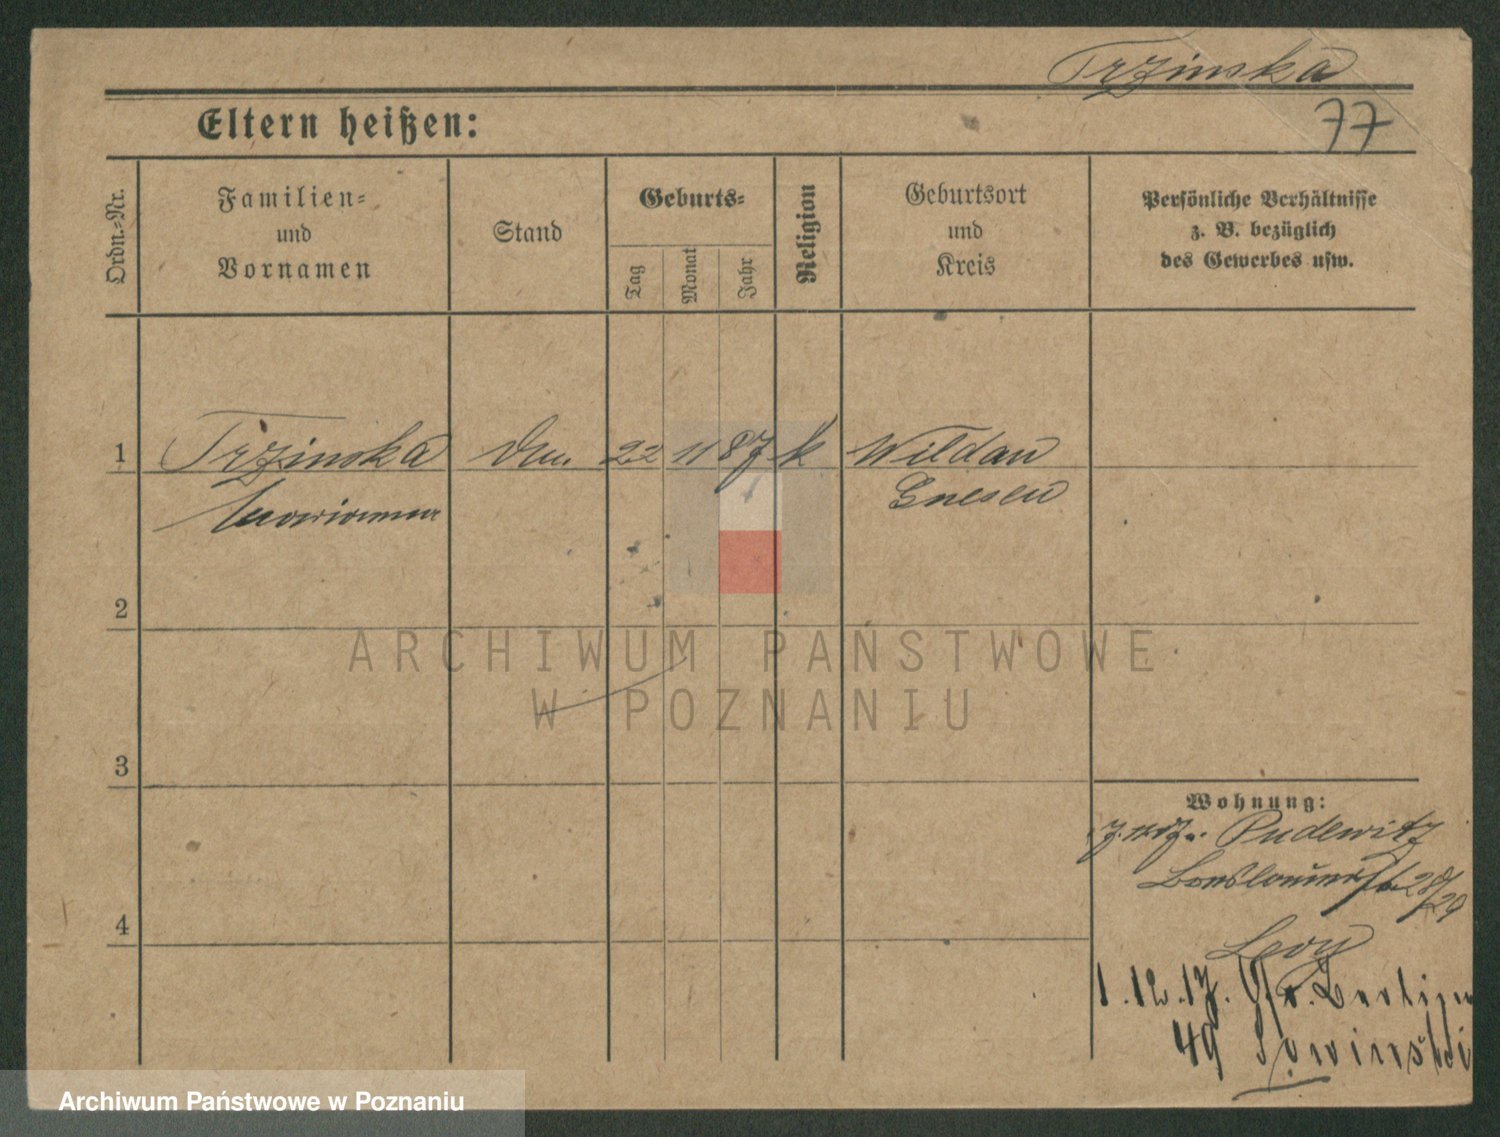 Trzinska
77
Eltern heißen:
Ordn.-Nr.
Familien-
und
Vornamen
Stand
Geburts-
Tag
Monat
Jahr
Religion
Geburtsort
und
Kreis
Persönliche Verhältnisse
z. B. bezüglich
des Gewerbes usw.
1 Trzinska 22 11 87 k Wildau
Marianna Gnesen
2
3
4
Wohnung:
Pudewitz
28/29
Levy
1.12.17. Gr. Berliner
49 Sowinski
ARCHIWUM PAŃSTWOWE
W POZNANIU
Archiwum Państwowe w Poznaniu